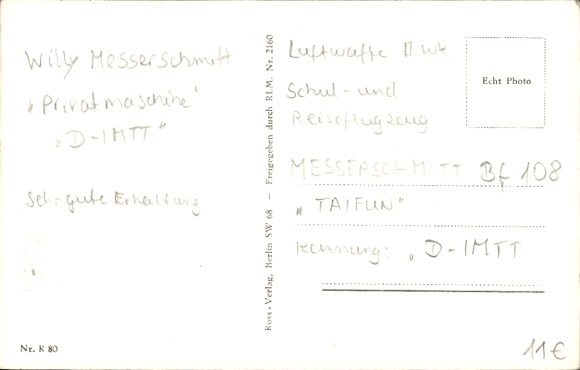 Willy Messerschmitt
"Privatmaschine"
"D-IMTT"
Sehr gute Erhaltung
Nr. K 80
Ross-Verlag, Berlin SW 68 — Freigegeben durch RLM. Nr. 2160
Luftwaffe II WK
Schul- und
Reiseflugzeug
MESSERSCHMITT Bf 108
"TAIFUN"
Kennung: "D-IMTT
Echt Photo
11€